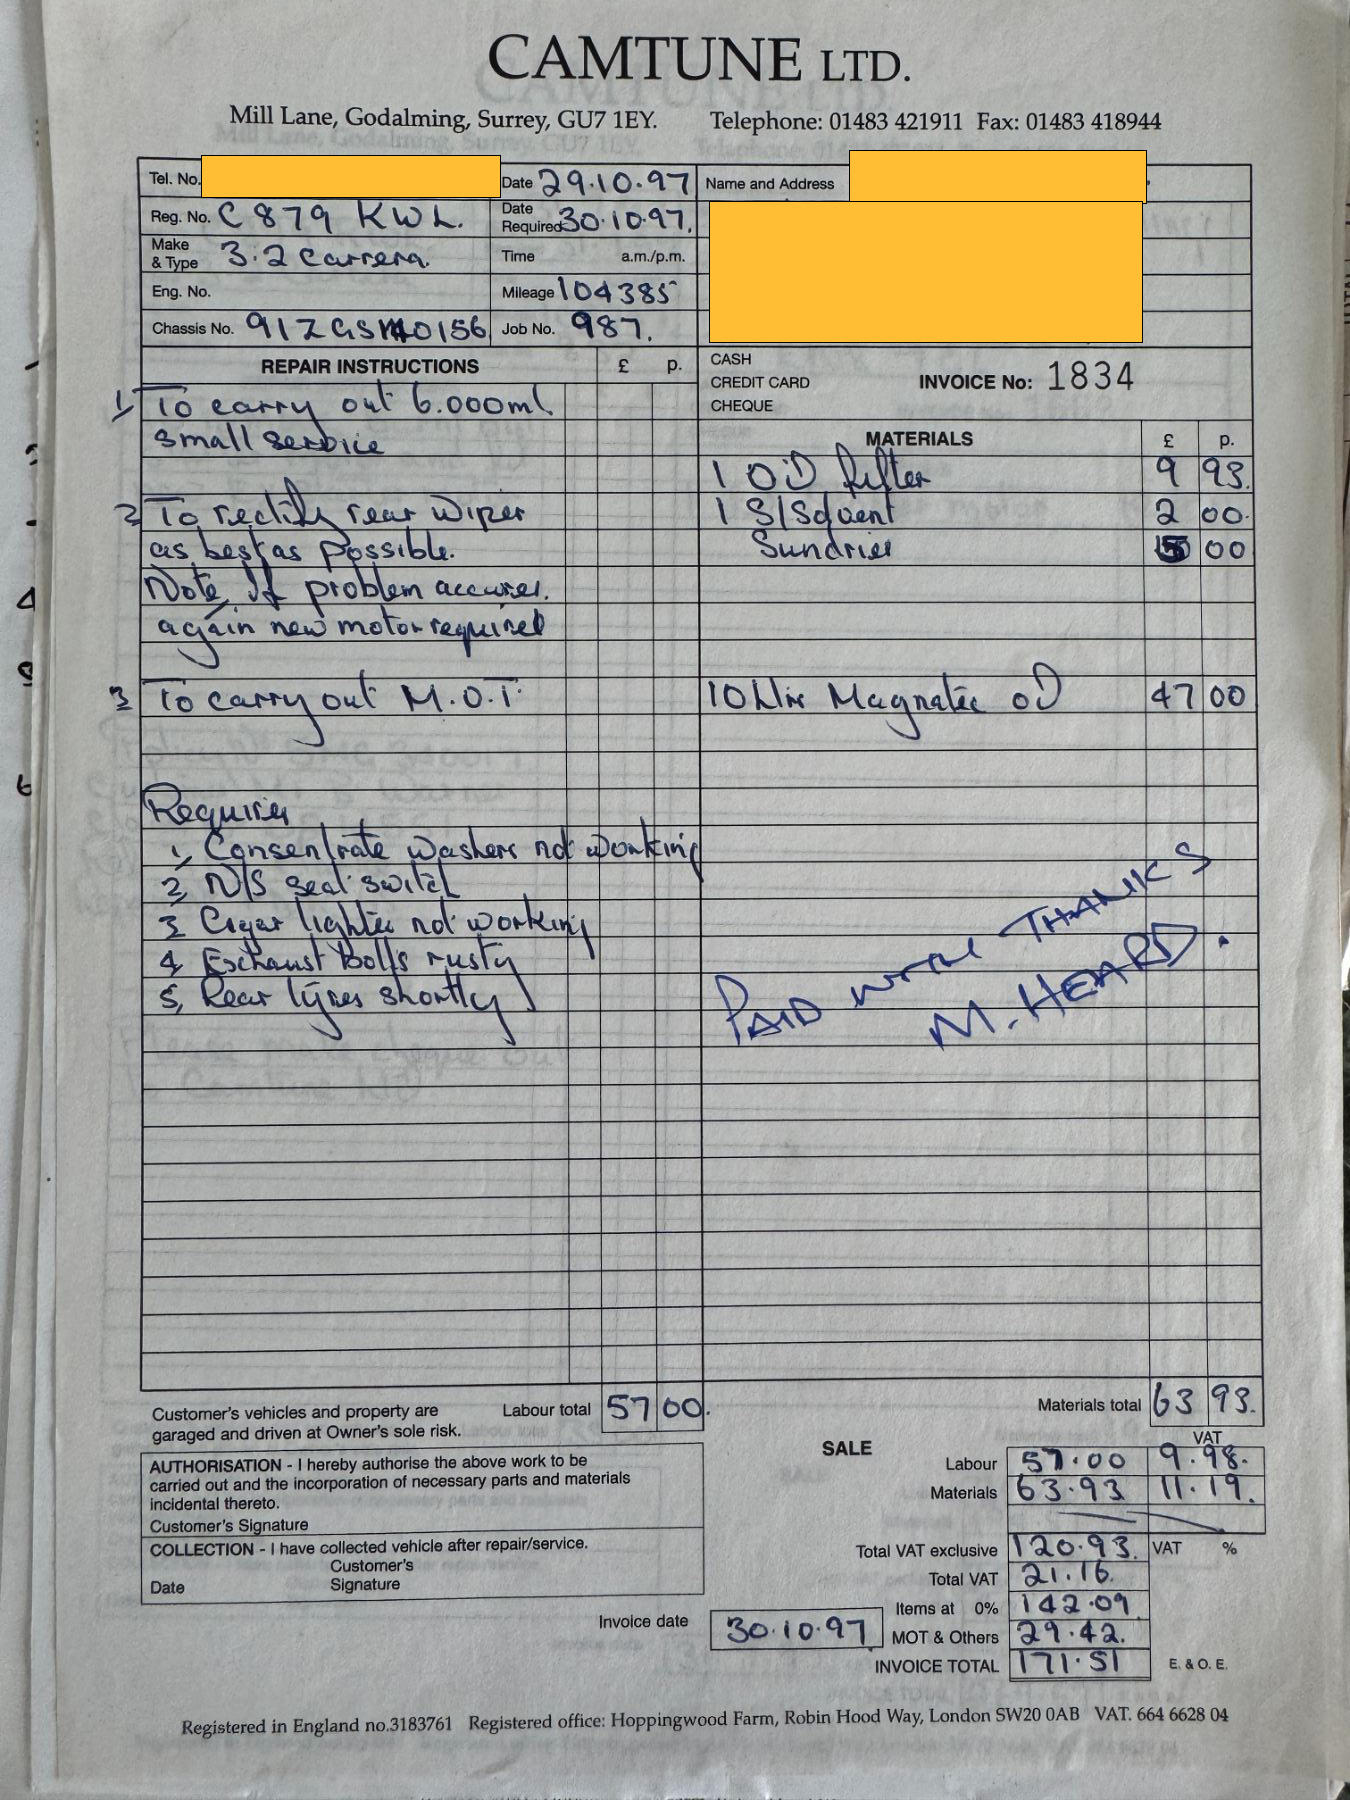 CAMTUNE LTD.
Mill Lane, Godalming, Surrey, GU7 1EY. Telephone: 01483 421911 Fax: 01483 418944
Tel. No. Date 29.10.97 Name and Address
Reg. No. C879 KWL. Date Required 30.10.97.
Make & Type 3.2 Carrera. Time a.m./p.m.
Eng. No. Mileage 104385
Chassis No. Job No. 987.
REPAIR INSTRUCTIONS £ p.
CASH
CREDIT CARD
CHEQUE
INVOICE No: 1834
1, To carry out 6.000ml.
small service
2, To rectify rear wiper
as best as possible.
Note, If problem accures.
again new motor required
3, To carry out M.O.T.
Requires
1, Consentrate washers not working
2, N/S seat switch
3, Cigar lighter not working
4, Exhaust bolts rusty
5, Rear tyres shortly
MATERIALS £ p.
1 Oil filter 9 93.
1 S/Solvent 2 00.
Sundries 5 00
10 Litre Magnatec oil 47 00
PAID WITH THANKS
M. HEARD.
Customer's vehicles and property are
garaged and driven at Owner's sole risk.
Labour total 57 00.
Materials total 63 93.
AUTHORISATION - I hereby authorise the above work to be
carried out and the incorporation of necessary parts and materials
incidental thereto.
Customer's Signature
COLLECTION - I have collected vehicle after repair/service.
Customer's
Date Signature
SALE VAT
Labour 57.00 9.98.
Materials 63.93 11.19.
Total VAT exclusive 120.93. VAT %
Total VAT 21.16.
Items at 0% 142.09
Invoice date 30.10.97 MOT & Others 29.42.
INVOICE TOTAL 171.51 E. & O. E.
Registered in England no.3183761 Registered office: Hoppingwood Farm, Robin Hood Way, London SW20 0AB VAT. 664 6628 04